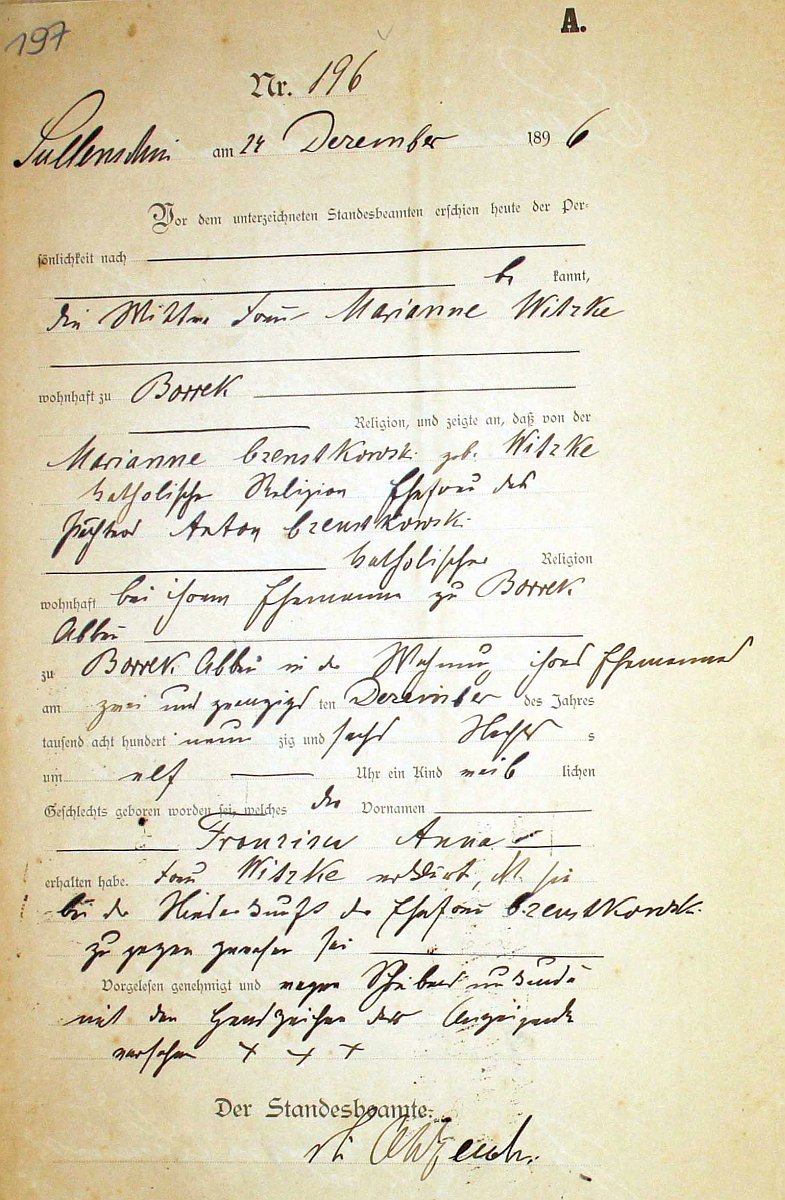 197
A.
Nr. 196
Sullenschin am 24 Dezember 1896
Vor dem unterzeichneten Standesbeamten erschien heute der Per-
sönlichkeit nach
be kannt,
die Wittwe Frau Marianne Witzke
wohnhaft zu Borrek
Religion, und zeigte an, daß von der
Marianne Czenstkowski geb. Witzke
katholischer Religion Ehefrau des
Pächters Anton Czenstkowski
katholischer Religion
wohnhaft bei ihrem Ehemanne zu Borrek
Abbau
zu Borrek Abbau in der Wohnung ihres Ehemannes
am zwei und zwanzigsten Dezember des Jahres
tausend acht hundert neun zig und sechs Nachts
um elf Uhr ein Kind weib lichen
Geschlechts geboren worden sei, welches die Vornamen
Anna
erhalten habe. Frau Witzke erklärt, daß sie
bei der Niederkunft der Ehefrau Czenstkowski
zugegen gewesen sei
Vorgelesen genehmigt und wegen Schreibensunkunde
mit den Handzeichen der Anzeigende
versehen + + +
Der Standesbeamte.